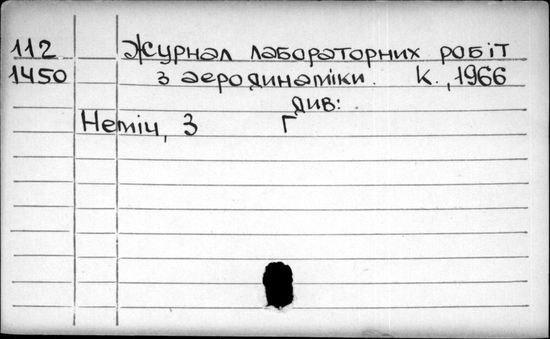 112 Журнал лабораторних робіт
1450 з аеродинаміки. К., 1966
див:
Нетіч, З Г